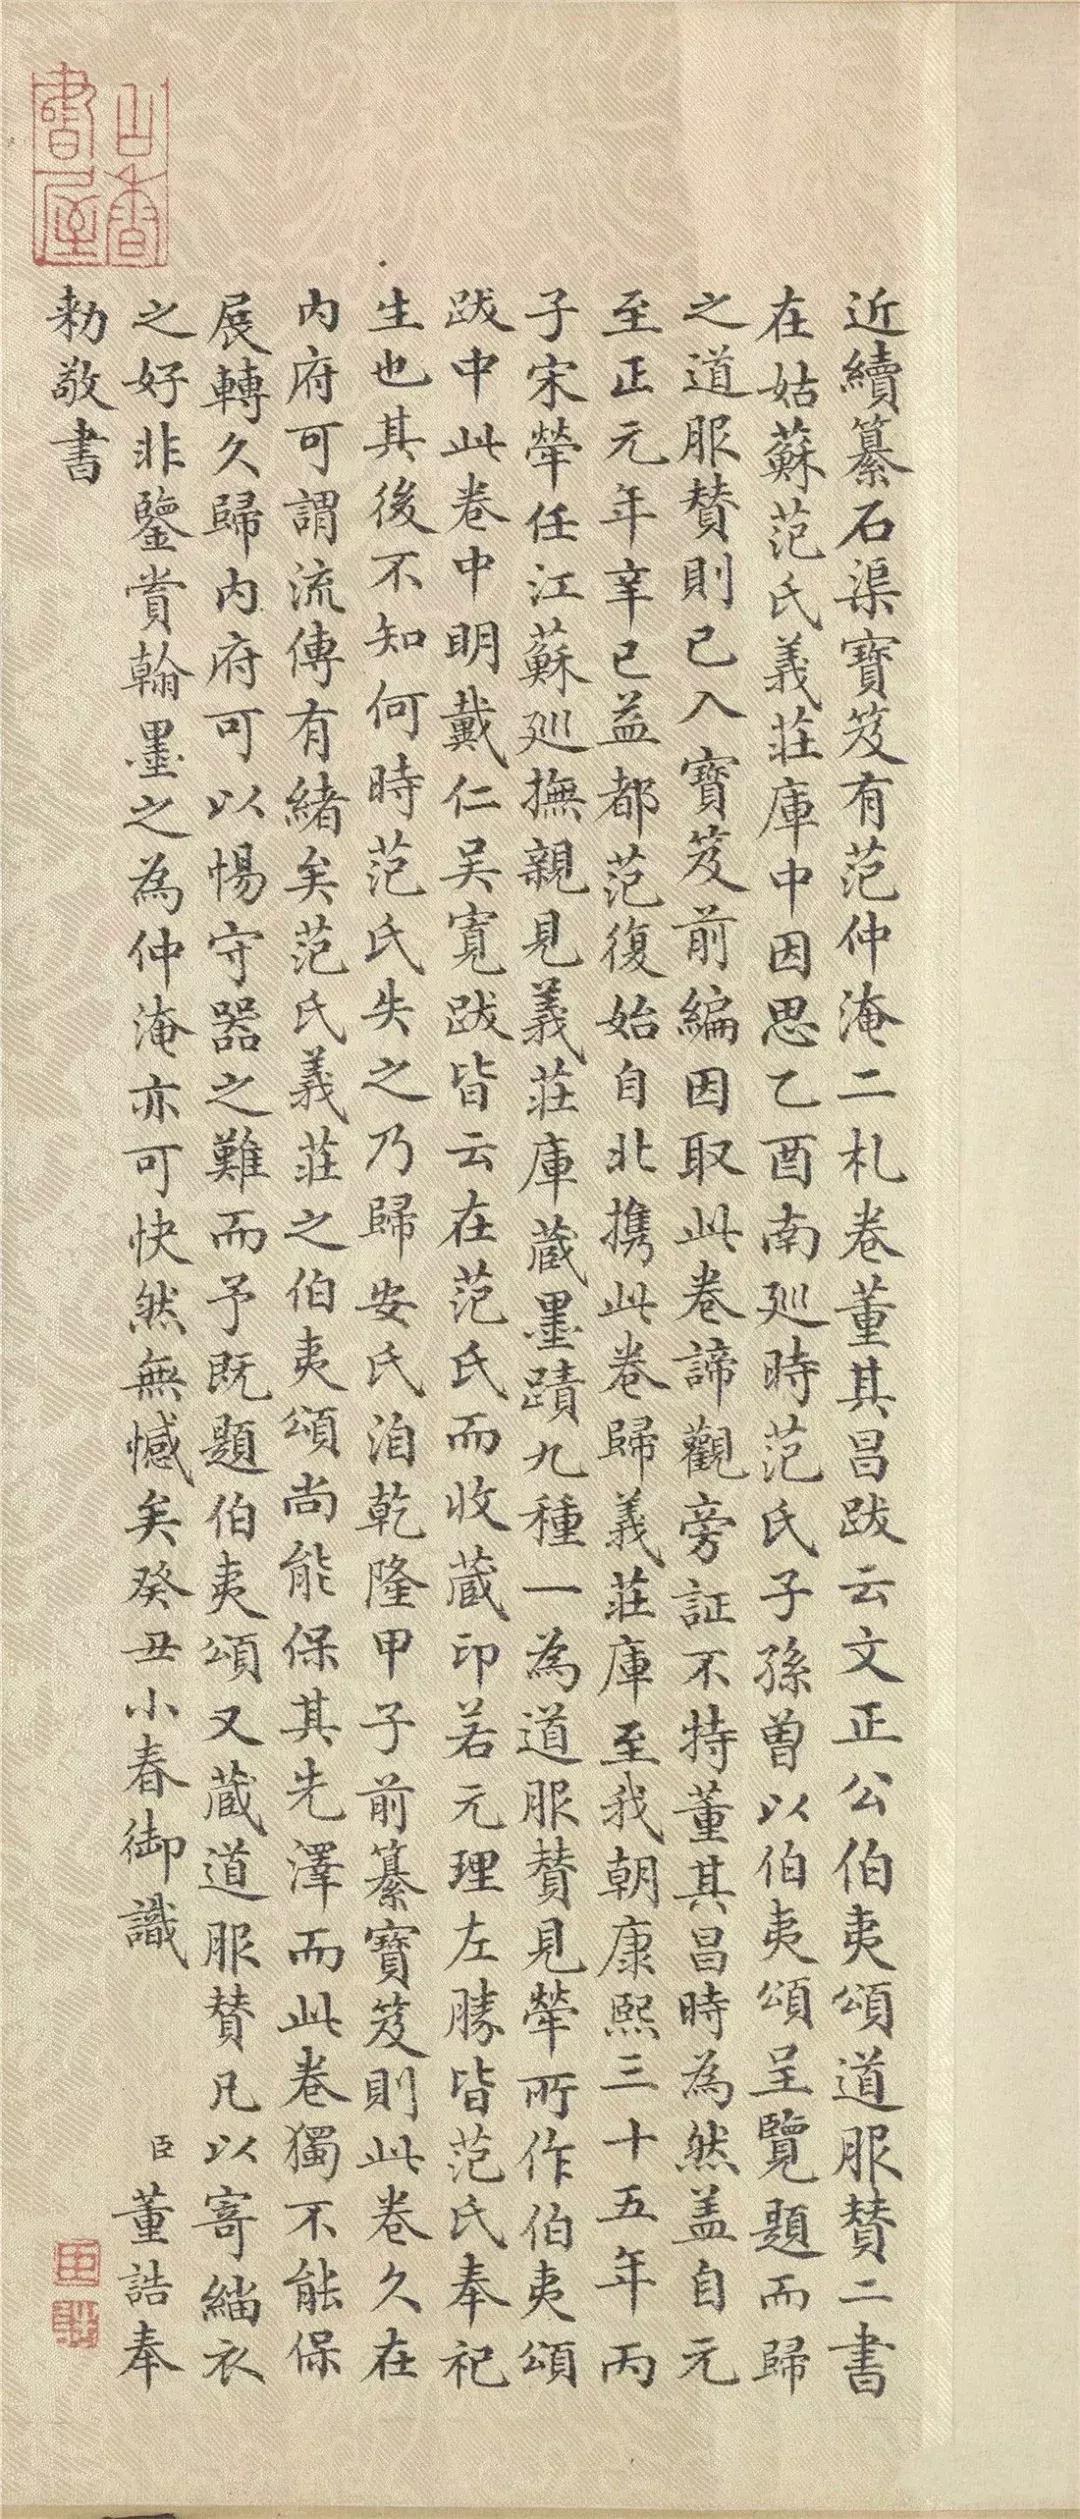 近續纂石渠寶笈有范仲淹二札卷董其昌跋云文正公伯夷頌道服贊二書
在姑蘇范氏義莊庫中因思乙酉南廵時范氏子孫曾以伯夷頌呈覽題而歸
之道服贊則已入寶笈前編因取此卷諦觀旁証不特董其昌時為然盖自元
至正元年辛巳益都范復始自北携此卷歸義莊庫至我朝康熙三十五年丙
子宋犖任江蘇廵撫親見義莊庫蔵墨蹟九種一為道服贊見犖所作伯夷頌
跋中此卷中明戴仁吴寛跋皆云在范氏而收蔵印若元理左勝皆范氏奉祀
生也其後不知何時范氏失之乃歸安氏洎乾隆甲子前纂寶笈則此卷久在
内府可謂流傳有緒矣范氏義莊之伯夷頌尚能保其先澤而此卷獨不能保
展轉久歸内府可以惕守器之難而予既題伯夷頌又蔵道服贊凡以寄緇衣
之好非鑒賞翰墨之為仲淹亦可快然無憾矣癸丑小春御識 臣董誥奉
勅敬書
古香書屋